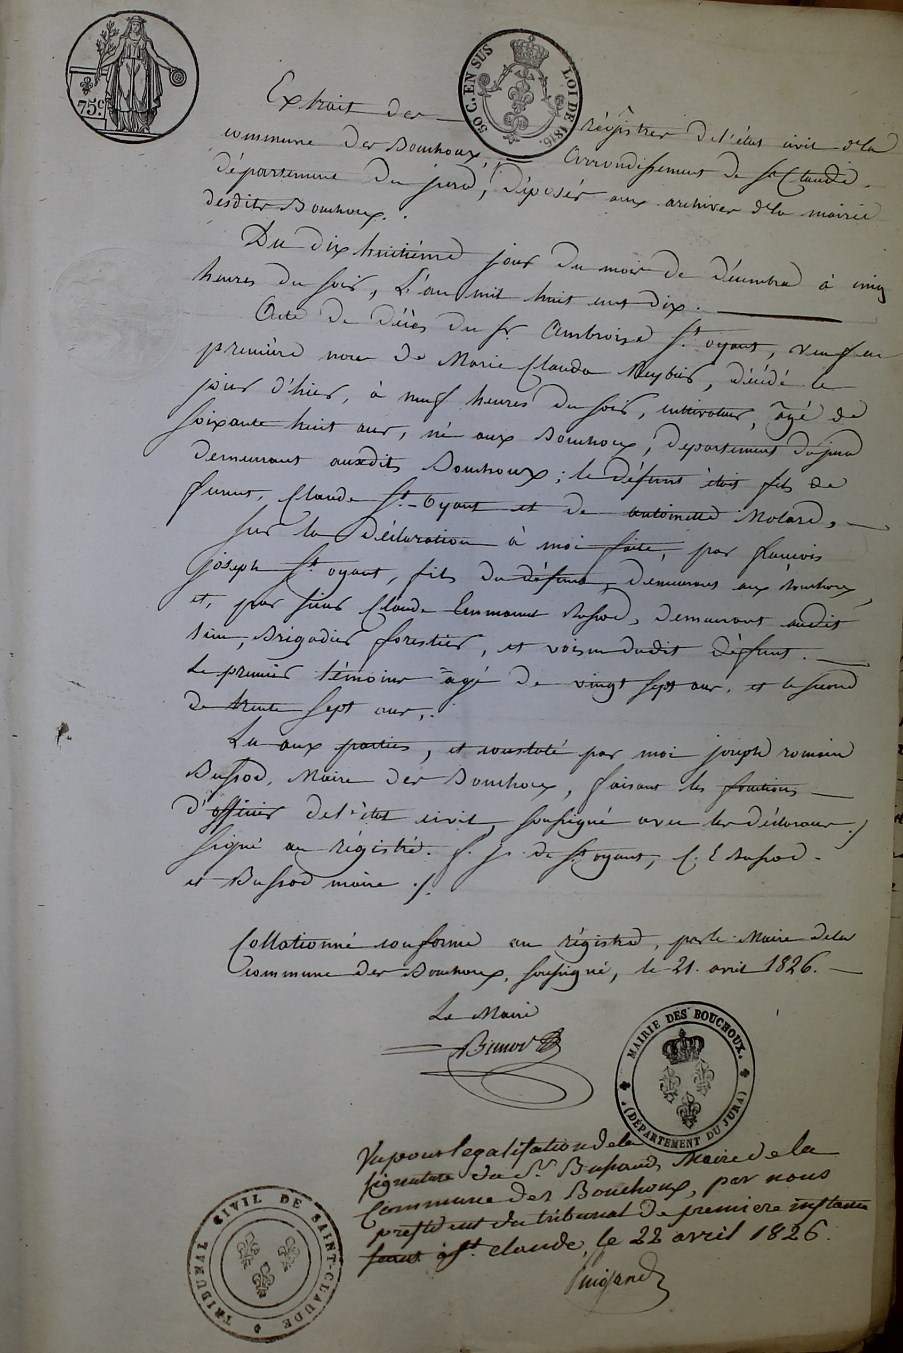 75 c.
50 C. EN SUS LOI DE 1816.
Extrait des régistres de l'état civil de la
commune des Bouchoux, arrondissement de St Claude,
département du jura, déposés aux archives de la mairie
desdits Bouchoux.
Du dix huitième jour du mois de décembre à cinq
heures du soir, L'an mil huit cent dix.
Acte de décès du Sr Ambroise St oyant, veuf en
première noce de Marie Claudine, décédé le
jour d'hier, à neuf heures du soir, cultivateur, âgé de
soixante huit ans, né aux Bouchoux, département du jura
demeurant auxdits Bouchoux; le défunt étoit fils de
furent, Claude St-Oyant et de antoinette Molard,
Sur la déclaration à moi faite, par francois
joseph St oyant, fils du défunt, demeurant aux bouchoux,
et, par sieur Claude Bussod, demeurant audit
lieu, Brigadier forestier, et voisin dudit défunt.
Le premier témoins âgé de vingt sept ans, et le second
de trente sept ans,.
Lu aux parties, et constaté par moi joseph romain
Bussod, Maire des Bouchoux, faisant les fonctions
d'officier de l'état civil, soussigné avec les déclarans./
Signé au régistre. f. j. de St oyant, C. E Bussod.
et Bussod maire ./.
Collationné conforme au régistre, par le Maire de la
Commune des Bouchoux, soussigné, le 21. avril 1826.
Le Maire
MAIRIE DES BOUCHOUX.
(DÉPARTEMENT DU JURA)
Vu pour legalisation de la
signature du Sr. Maire de la
Commune des Bouchoux, par nous
president du tribunal de premiere instance
seant à St. claude, le 22 avril 1826.
TRIBUNAL CIVIL DE SAINT-CLAUDE